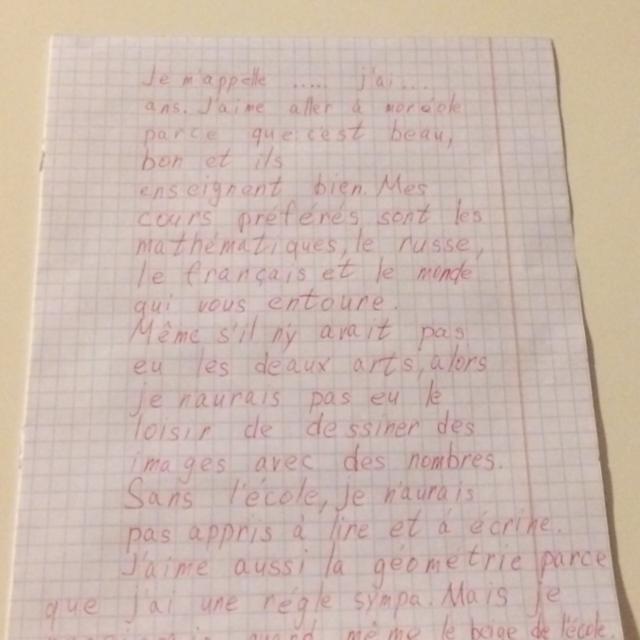 Je m'appelle ..... j'ai ...
ans. J'aime aller à
parce que c'est beau,
bon et ils
enseignent bien. Mes
cours préférés sont les
mathématiques, le russe,
le français et le monde
qui vous entoure.
Même s'il n'y avait pas
eu les deaux arts, alors
je n'aurais pas eu le
loisir de dessiner des
images avec des nombres.
Sans l'école, je n'aurais
pas appris à lire et à écrire.
J'aime aussi la géométrie parce
que j'ai une régle sympa. Mais je
quand même le de l'école.